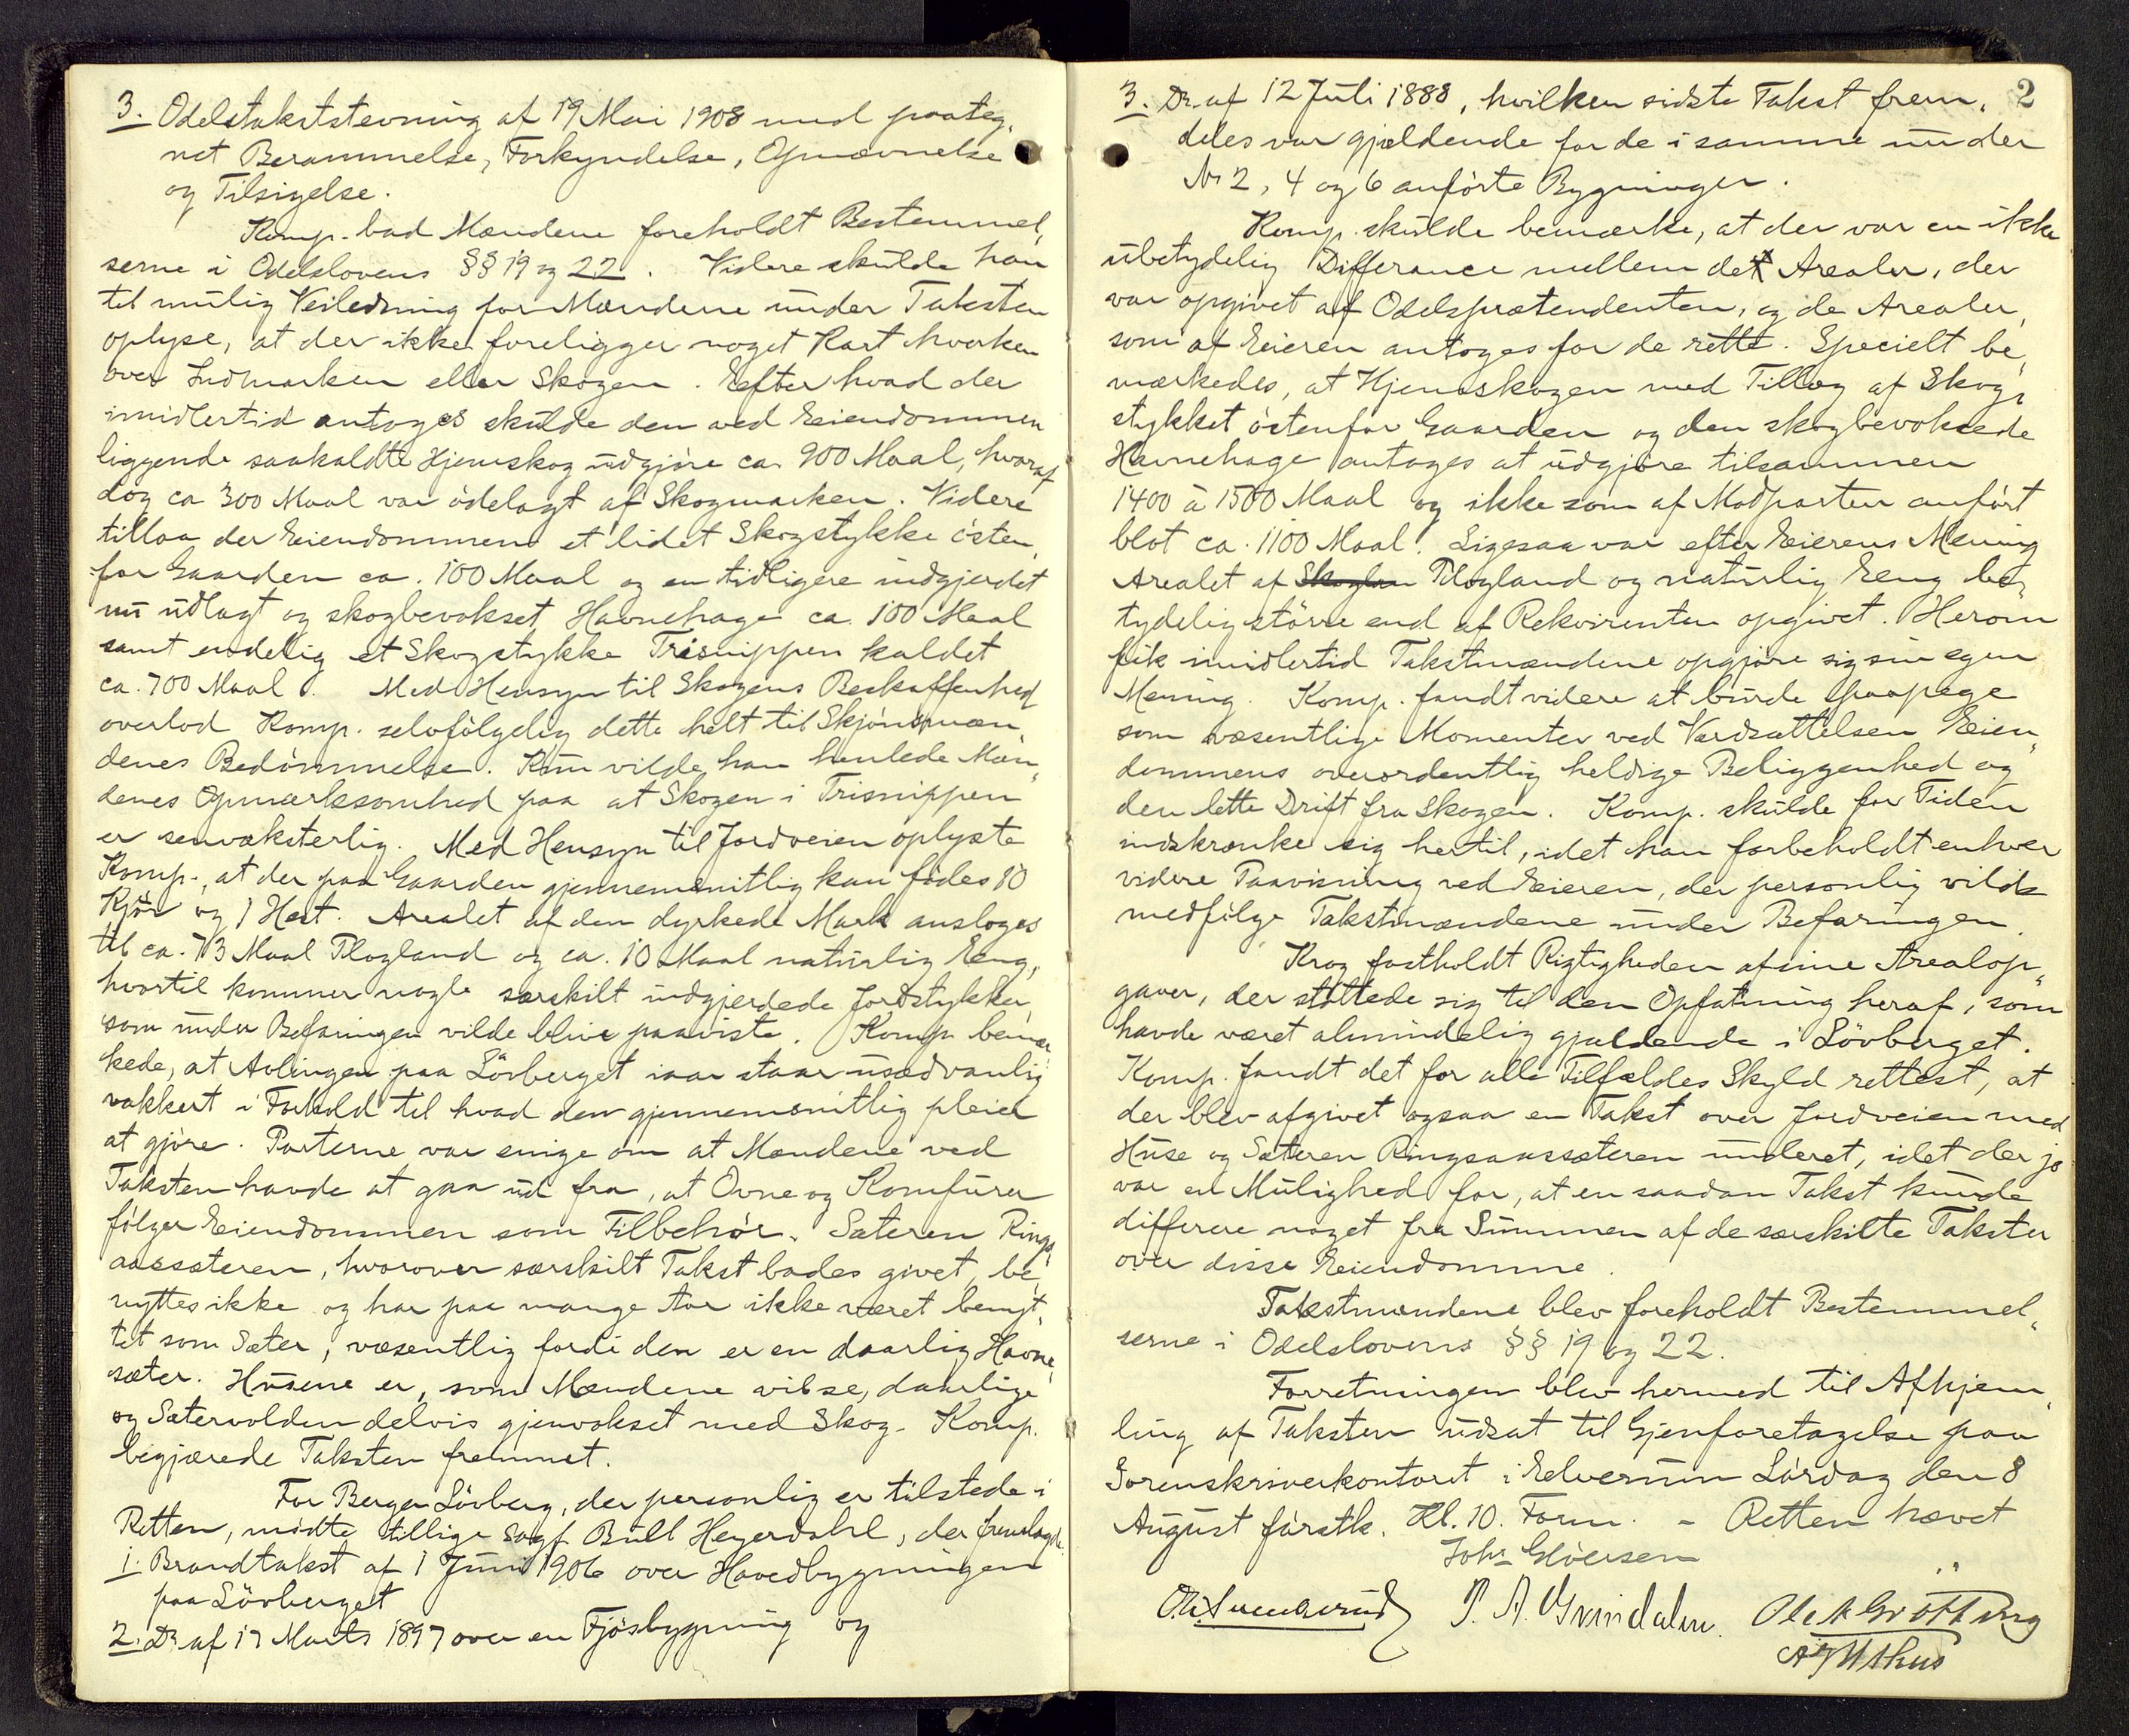 3. Odelstakststevning af 19 Mai 1908 med paateg„
net Berammelse, Forkyndelse, Opnævnelse
og Tilsigelse.
Komp. bad Mændene foreholdt Bestemmel„
serne i Odelslovens §§ 19 og 22. Videre skulde han
til mulig Veiledning for Mændene under Taksten
oplyse, at der ikke foreligger noget Kart hverken
over Indmarken eller Skogen. Efter hvad der
imidlertid antoges skulde den ved Eiendommen
liggende saakaldte Hjemskog udgjøre ca. 900 Maal, hvoraf
dog ca 300 Maal var ødelagt af Skogmarken. Videre
tillaa der Eiendommen et lidet Skogstykke østen„
for Gaarden ca. 100 Maal og en tidligere indgjerdet
nu udlagt og skogbevokset Havnehage ca. 100 Maal
samt endelig et Skogstykke Trisnippen kaldet
ca. 700 Maal. Med Hensyn til Skogens Beskaffenhed
overlod Komp. selvfølgelig dette helt til Skjønsmæn„
denes Bedømmelse. Kun vilde han henlede Mæn„
denes Opmærksomhed paa at Skogen i Trisnippen
er senvæksterlig. Med Hensyn til Jordveien oplyste
Komp., at der paa Gaarden gjennemsnitlig kan fødes 10
Kjør og 1 Hest. Arealet af den dyrkede Mark ansloges
til ca. 73 Maal Plogland og ca. 10 Maal naturlig Eng,
hvortil kommer nogle særskilt indgjerdede Jordstykker,
som under Befaringen vilde blive paaviste. Komp. bemær„
kede, at Avlingen paa Lövberget iaar staar usædvanlig
vakkert i Forhold til hvad den gjennemsnitlig pleier
at gjøre. Parterne var enige om at Mændene ved
Taksten havde at gaa ud fra, at Ovne og Komfurer
følger Eiendommen som Tilbehør. Sæteren Rings„
aassæteren, hvorover særskilt Takst bades givet, be„
nyttes ikke og har paa mange Aar ikke været benyt„
tet som Sæter, væsentlig fordi den er en daarlig Havne„
sæter. Husene er, som Mændene vil se, daarlige
og Sætervolden delvis gjenvokset med Skog. Komp.
begjærede Taksten fremmet.
For Berger Lövberg, der personlig er tilstede i
Retten, mødte tillige Sagf. Bull Heyerdahl, der fremlagde:
1. Brandtakst af 1 Juni 1906 over Hovedbygningen
paa Lövberget
2. Do af 17 Marts 1897 over en Fjøsbygning og
2
3. Do af 12 Juli 1888, hvilken sidste Takst frem„
deles var gjældende for de i samme under
No 2, 4 og 6 anførte Bygninger.
Komp. skulde bemærke, at der var en ikke
ubetydelig Differance mellem de Arealer, der
var opgivet af Odelsprætendenten, og de Arealer,
som af Eieren antoges for de rette. Specielt be„
mærkedes, at Hjemskogen med Tillæg af Skog„
stykket østenfor Gaarden og den skogbevoksede
Havnehage antages at udgjøre tilsammen
1400 à 1500 Maal og ikke som af Modparten anført
blot ca. 1100 Maal. Ligesaa var efter Eierens Mening
Arealet af Skoglan Plogland og naturlig Eng be„
tydelig større end af Rekvirenten opgivet. Herom
fik imidlertid Takstmændene opgjøre sig sin egen
Mening. Komp. fandt videre at burde paapege
som væsentlige Momenter ved Værdsættelsen Eien„
dommens overordentlig heldige Beliggenhed og
den lette Drift fra Skogen. Komp. skulde for Tiden
indskrænke sig hertil, idet han forbeholdt enhver
videre Paavisning ved Eieren, der personlig vilde
medfølge Takstmændene under Befaringen.
Krog fastholdt Rigtigheden af sine Arealop„
gaver, der støttede sig til den Opfatning heraf, som
havde været almindelig gjældende i Lövberget.
Komp. fandt det for alle Tilfældes Skyld rettest, at
der blev afgivet ogsaa en Takst over Jordveien med
Huse og Sæteren Ringsaassæteren underet, idet der jo
var en Mulighed for, at en saadan Takst kunde
differere noget fra Summen af de særskilte Takster
over disse Eiendomme.
Takstmændene blev foreholdt Bestemmel„
serne i Odelslovens §§ 19 og 22.
Forretningen blev hermed til Afhjem„
ling af Taksten udsat til Gjenforetagelse paa
Sorenskriverkontoret i Elverum Lørdag den 8
August førstk. Kl. 10. Form. – Retten hævet
Johs Gløersen
P. A. Grindalen. Ole A Grøtting